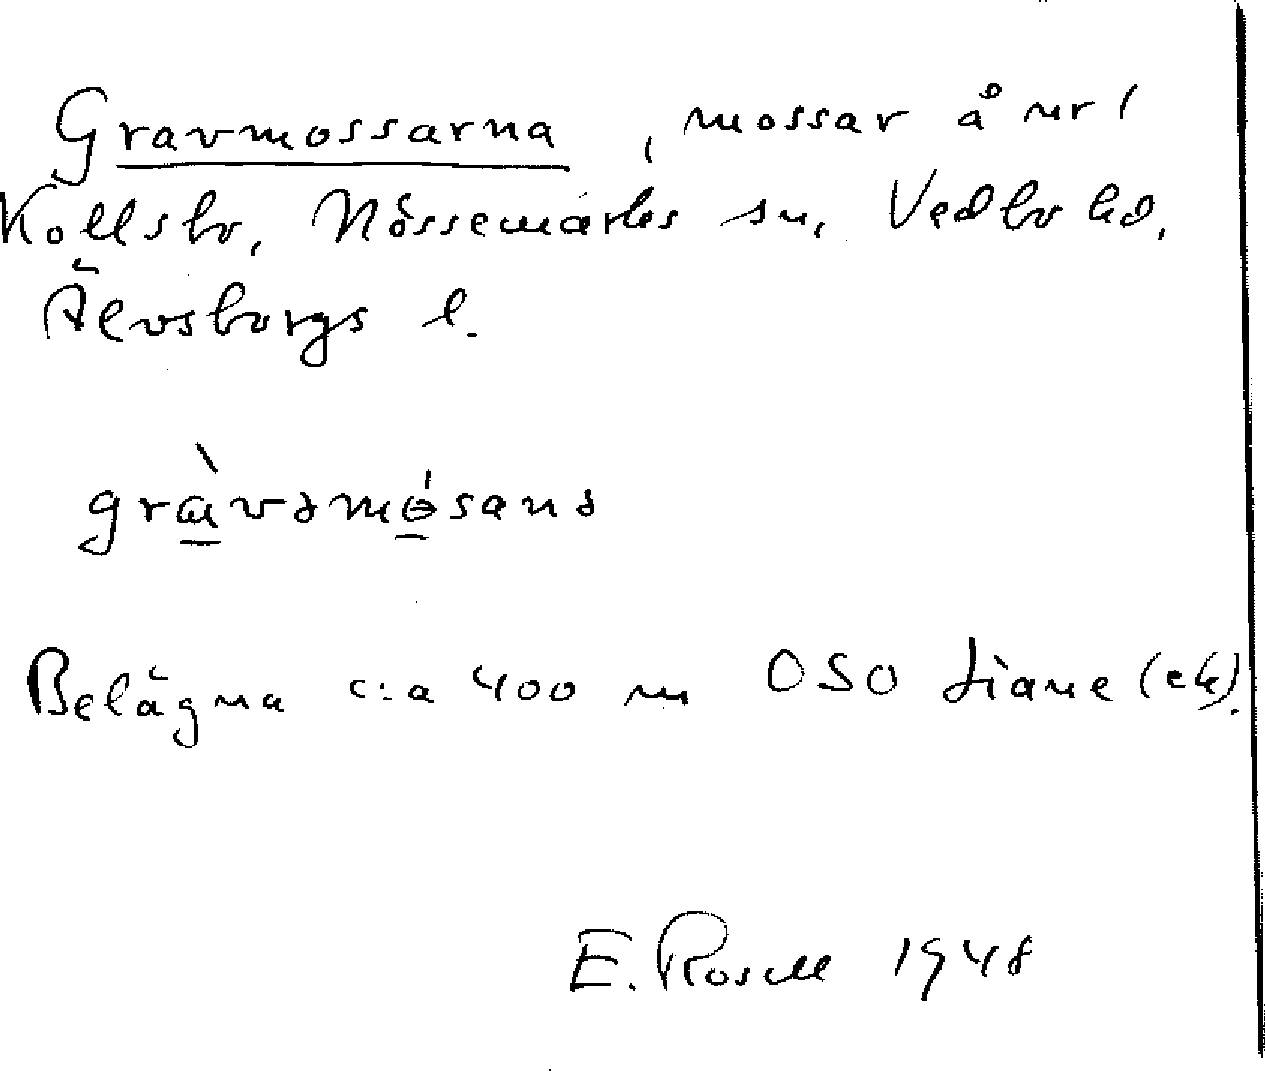 Gravmossarna, mossar å nr 1
Kollsbo, Nössemarks sn, Vedbo hd,
Älvsborgs l.
gràvəmósanə
Belägna c:a 400 m OSO Liane (ek).
E. Rosell 1948